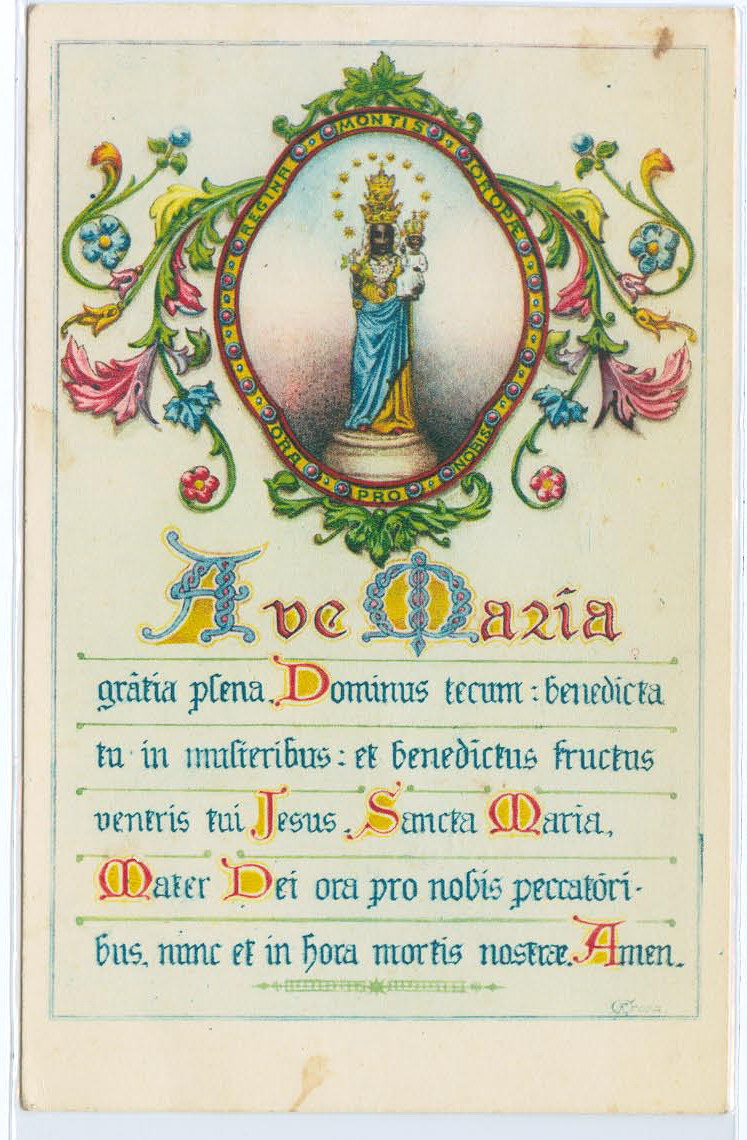 REGINA MONTIS OROPÆ
ORA PRO NOBIS
Ave Maria
grâtia plena. Dominus tecum : benedicta
tu in mulieribus : et benedictus fructus
ventris tui Jesus. Sancta Maria,
Mater Dei ora pro nobis peccatōri-
bus, nunc et in hora mortis nostræ. Amen.